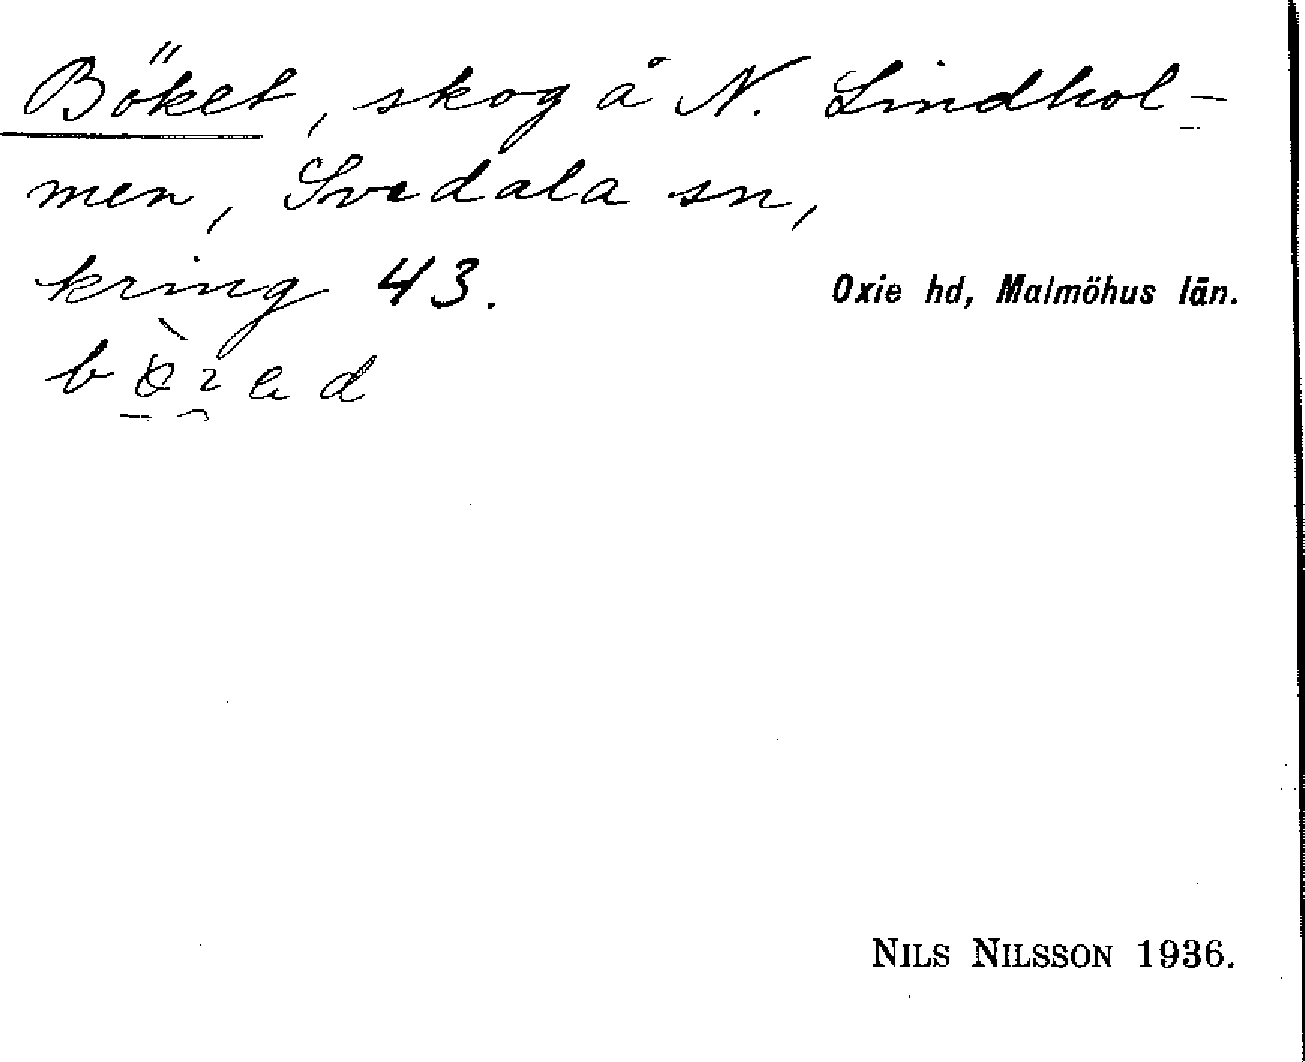 Böket, skog å N. Lindhol-
men, Svedala sn,
kring 43.
Oxie hd, Malmöhus län.
NILS NILSSON 1936.